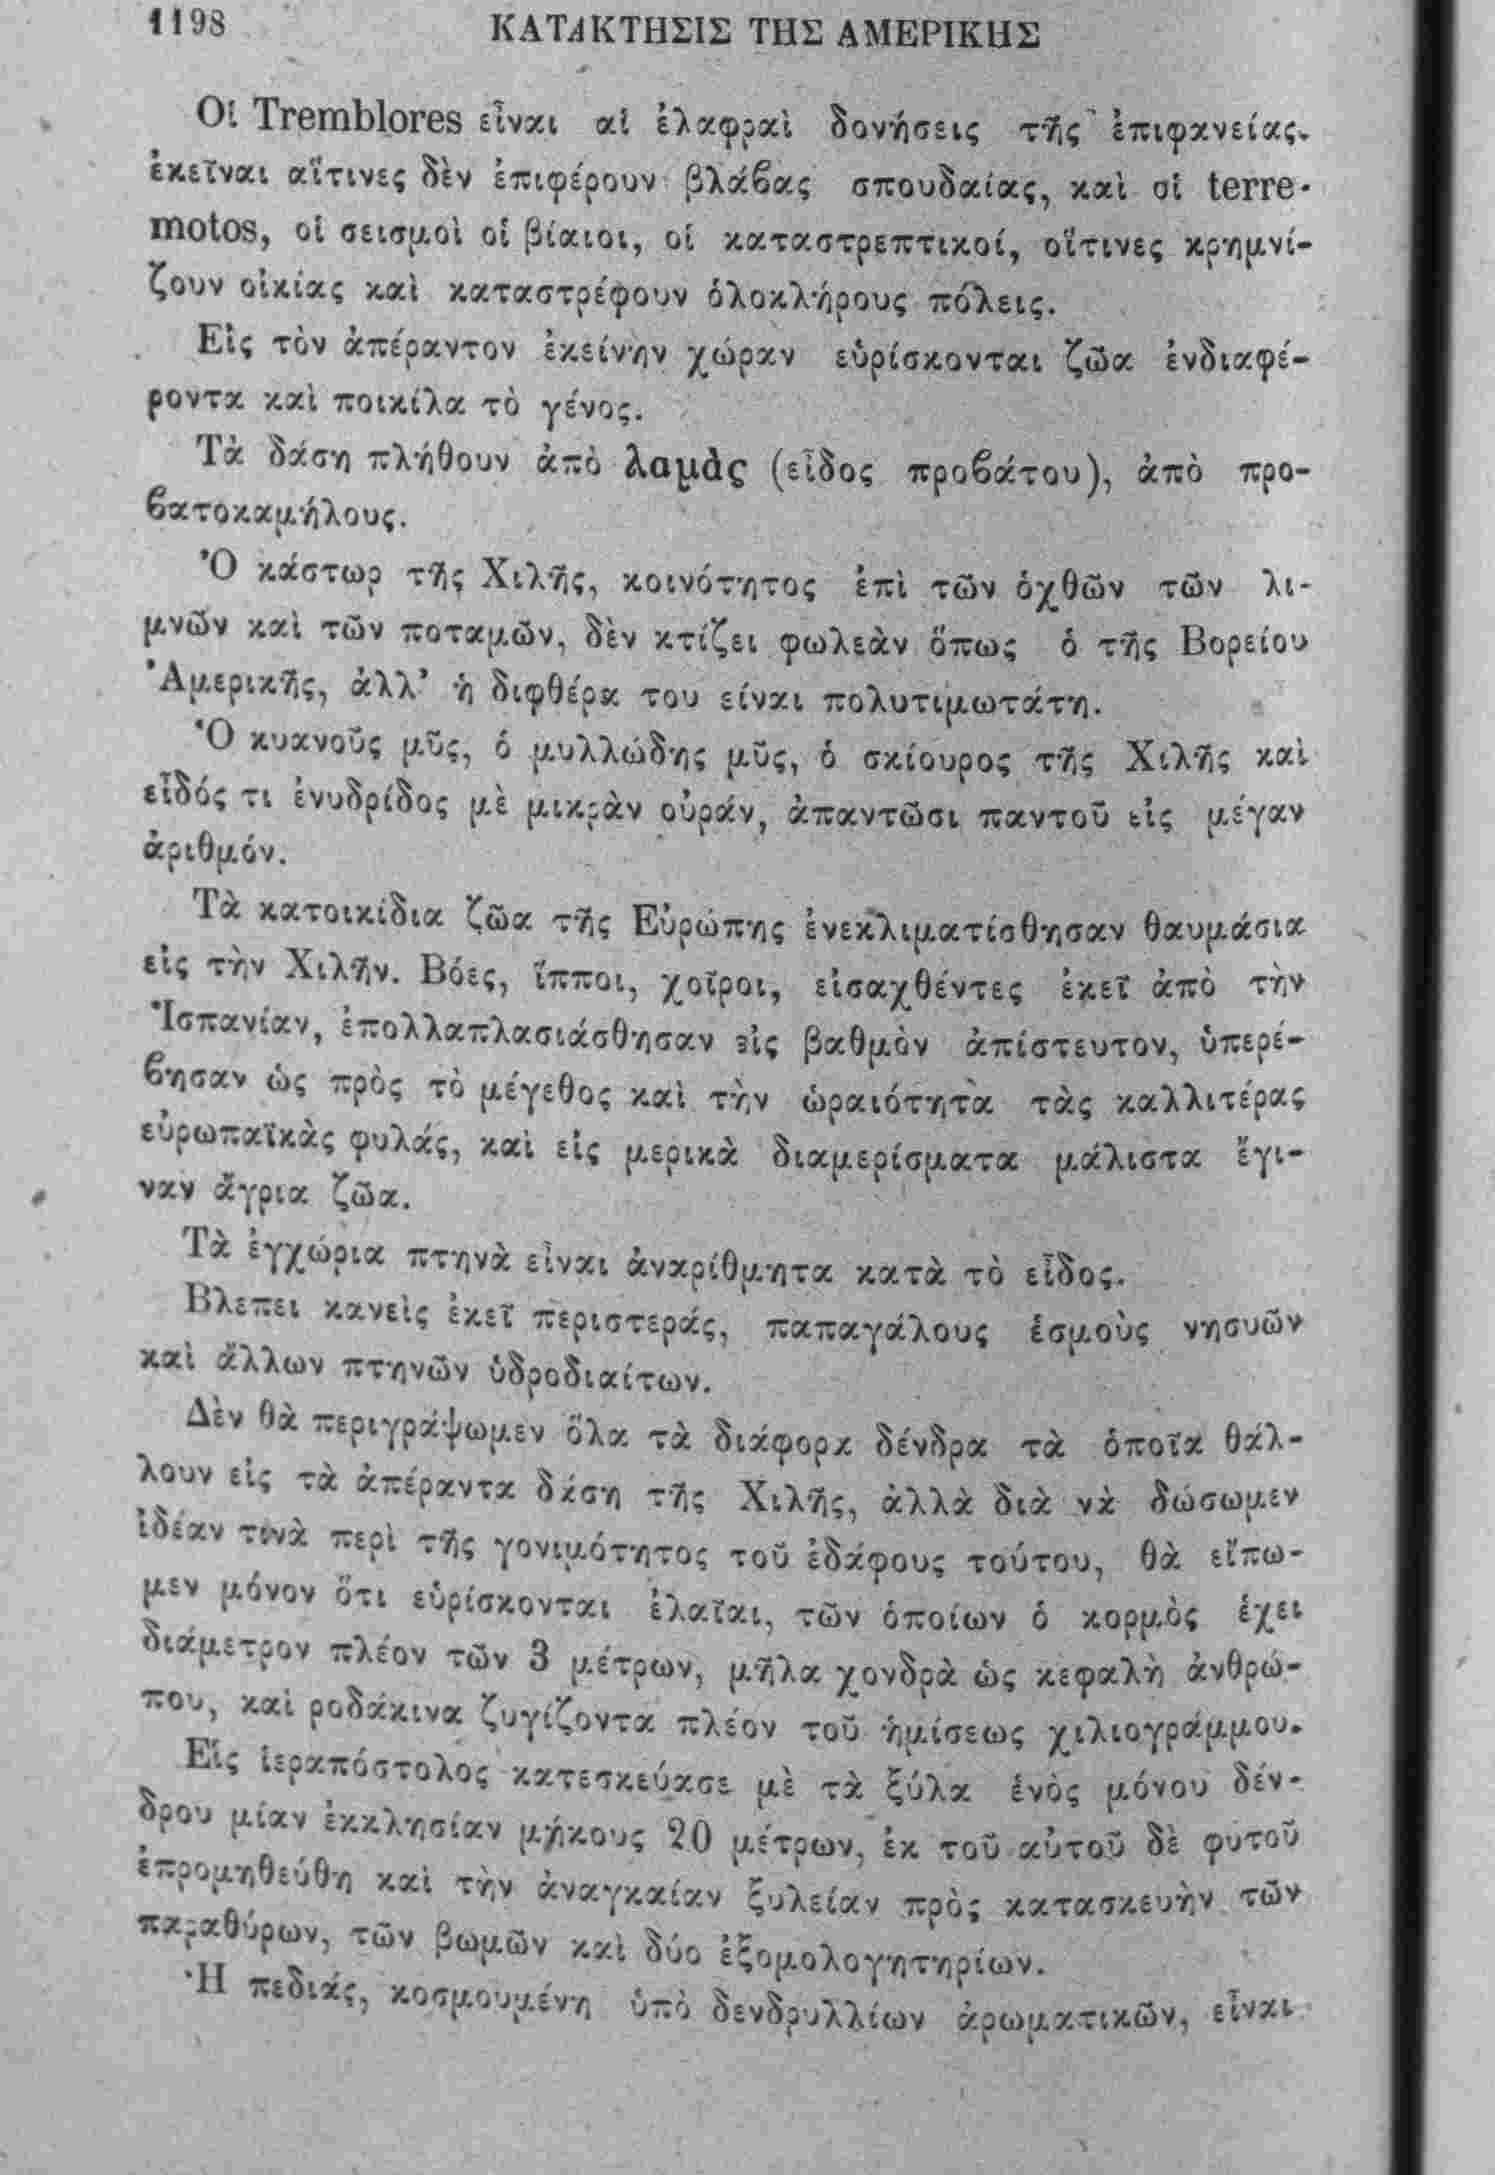 1198 ΚΑΤΑΚΤΗΣΙΣ ΤΗΣ ΑΜΕΡΙΚΗΣ
Οἱ Tremblores εἶναι αἱ ἐλαφραὶ δονήσεις τῆς ἐπιφανείας.
ἐκεῖναι αἵτινες δὲν ἐπιφέρουν βλάβας σπουδαίας, καὶ οἱ terre-
motos, οἱ σεισμοὶ οἱ βίαιοι, οἱ καταστρεπτικοί, οἵτινες κρημνί-
ζουν οἰκίας καὶ καταστρέφουν ὁλοκλήρους πόλεις.
Εἰς τὸν ἀπέραντον ἐκείνην χώραν εὑρίσκονται ζῶα ἐνδιαφέ-
ροντα καὶ ποικίλα τὸ γένος.
Τὰ δάση πλήθουν ἀπὸ λαμὰς (εἶδος προβάτου), ἀπὸ προ-
βατοκαμήλους.
Ὁ κάστωρ τῆς Χιλῆς, κοινότητος ἐπὶ τῶν ὀχθῶν τῶν λι-
μνῶν καὶ τῶν ποταμῶν, δὲν κτίζει φωλεὰν ὅπως ὁ τῆς Βορείου
Ἀμερικῆς, ἀλλ’ ἡ διφθέρα του είναι πολυτιμωτάτη.
Ὁ κυανοῦς μῦς, ὁ μυλλώδης μῦς, ὁ σκίουρος τῆς Χιλῆς καὶ
εἶδός τι ἐνυδρίδος μὲ μικρὰν οὐράν, ἀπαντῶσι παντοῦ εἰς μέγαν
ἀριθμόν.
Τὰ κατοικίδια ζῶα τῆς Εὐρώπης ἐνεκλιματίσθησαν θαυμάσια
εἰς τὴν Χιλῆν. Βόες, ἵπποι, χοῖροι, εἰσαχθέντες ἐκεῖ ἀπὸ τὴν
Ἰσπανίαν, ἐπολλαπλασιάσθησαν εἰς βαθμὸν ἀπίστευτον, ὑπερέ-
βησαν ὡς πρὸς τὸ μέγεθος καὶ τὴν ὡραιότητα τὰς καλλιτέρας
εὐρωπαϊκὰς φυλάς, καὶ εἰς μερικὰ διαμερίσματα μάλιστα ἔγι-
ναν ἄγρια ζῶα.
Τὰ ἐγχώρια πτηνὰ εἶναι ἀναρίθμητα κατὰ τὸ εἶδος.
Βλεπει κανεὶς ἐκεῖ περιστεράς, παπαγάλους ἑσμοὺς νησυῶν
καὶ ἄλλων πτηνῶν ὑδροδιαίτων.
Δὲν θὰ περιγράψωμεν ὅλα τὰ διάφορα δένδρα τὰ ὁποῖα θάλ-
λουν εἰς τὰ ἀπέραντα δάση τῆς Χιλῆς, ἀλλὰ διὰ νὰ δώσωμεν
ἰδέαν τινὰ περὶ τῆς γονιμότητος τοῦ ἐδάφους τούτου, θὰ εἴπω-
μεν μόνον ὅτι εὑρίσκονται ἐλαῖαι, τῶν ὁποίων ὁ κορμὸς ἔχει
διάμετρον πλέον τῶν 3 μέτρων, μῆλα χονδρὰ ὡς κεφαλὴ ἀνθρώ-
που, καὶ ροδάκινα ζυγίζοντα πλέον τοῦ ἡμίσεως χιλιογράμμου.
Εἷς ἱεραπόστολος κατεσκεύασε μὲ τὰ ξύλα ἑνὸς μόνου δέν-
δρου μίαν ἐκκλησίαν μήκους 20 μέτρων, ἐκ τοῦ αὐτοῦ δὲ φυτοῦ
ἐπρομηθεύθη καὶ τὴν ἀναγκαίαν ξυλείαν πρὸς κατασκευὴν τῶν
παραθύρων, τῶν βωμῶν καὶ δύο ἐξομολογητηρίων.
Ἡ πεδιάς, κοσμουμένη ὑπὸ δενδρυλλίων ἀρωματικῶν, εἶναι